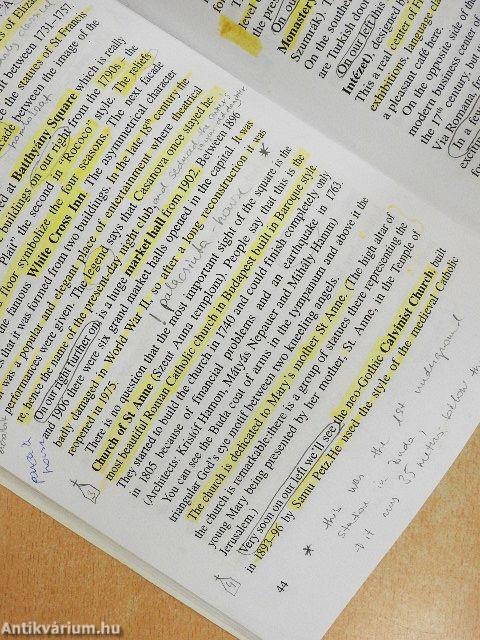 of Eliza
between 1731-1757.
the statues of St Francis,
between the image of the
ed at Batthyány Square which is really
buildings on our right from the 1790s - the
Bar" the second in "Rococo" style. The reliefs
floor symbolize the four seasons. The next facade
the famous White Cross Inn. The asymmetrical character
that it was formed from two buildings. In the late 18th century the
was a popular and elegant place of entertainment where theatrical
performances were given. The legend says that Casanova once stayed he-
re, hence the name of the present-day night club.
On our right (further on) is a huge market hall from 1902. Between 1896
and 1906 there were six grand market halls opened in the capital. It was
badly damaged in World War II, so after a long reconstruction it was
reopened in 1975.
There is no question that the most important sight of the square is the
Church of St Anne (Szent Anna templom). People say that this is the
most beautiful Roman Catholic church in Budapest built in Baroque style.
They started to build the church in 1740 and could finish completely only
in 1805 because of financial problems and an earthquake in 1763.
(Architects: Kristóf Hamon, Mátyás Nepauer and Mihály Hamm)
You can see the Buda coat of arms in the tympanum and above it the
triangular God's eye motif between two kneeling angels.
The church is dedicated to Mary's mother St Anne. (The high altar of
the church is remarkable: there is a group of statues there representing the
young Mary being presented by her mother, St Anne, in the Temple of
Jerusalem.)
Very soon on our left we'll see the neo-Gothic Calvinist Church, built
in 1893-96 by Samu Petz. He used the style of the medieval Catholic
44
* this was the 1st underground
station in Buda
it runs 35 meters below the
13
14
Monastery
On the southe
are Turkish dou
On our left th
Intézet), designed by
This a real center of Fr
exhibitions, language cla
a pleasant cafe here.
On the opposite side of the
modern business center of
the 17th century, but
Via Romana fr
In a few
Antikvárium.hu